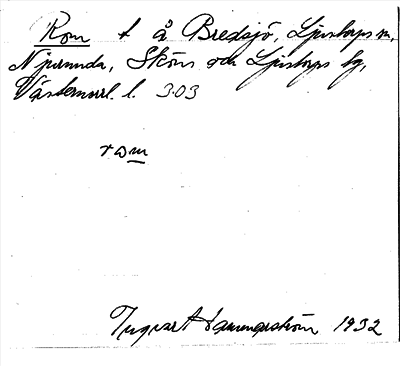 Rom t å Bredsjö, Ljustorps sn,
Njurunda, Sköns och Ljustorps tg,
Västernorrl. l. 303
rom
Ingvart 1932